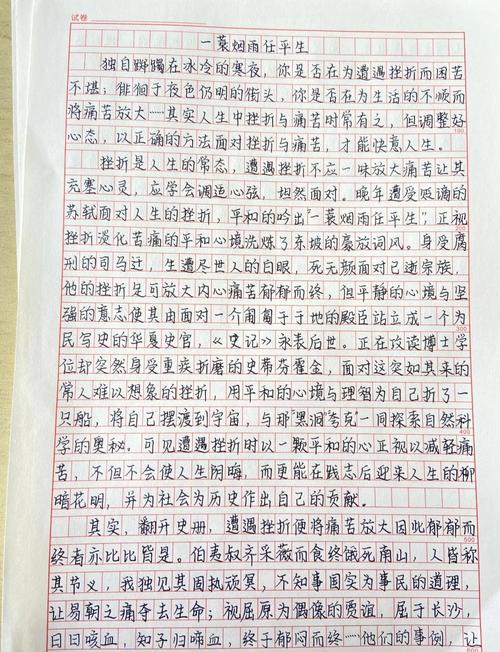 试卷
一蓑烟雨任平生
独自踯躅在冰冷的寒夜，你是否在为遭遇挫折而困苦
不堪；徘徊于夜色仍明的街头，你是否在为生活的不顺而
将痛苦放大……其实人生中挫折与痛苦时常有之，但调整好
心态，以正确的方法面对挫折与痛苦，才能快意人生。
100
挫折是人生的常态，遭遇挫折不应一味放大痛苦让其
充塞心灵，应学会调适心弦，坦然面对。晚年遭受贬谪的
苏轼面对人生的挫折，平和的吟出“一蓑烟雨任平生”，正视
200
挫折淡化苦痛的平和心境洗炼了东坡的豪放词风。身受腐
刑的司马迁，生遭尽世人的白眼，死无颜面对已逝宗族，
他的挫折足可放大内心痛苦郁郁而终，但平静的心境与坚
强的意志使其由面对一个匍匐于于地的殿臣站立成一个为
300
民写史的华夏史官，《史记》永表后世。正在攻读博士学
位却突然身受重疾折磨的史蒂芬霍金，面对这突如其来的
常人难以想象的挫折，用平和的心境与理智为自己折了一
只船，将自己摆渡到宇宙，与那“黑洞”“夸克”一同探索自然科
400
学的奥秘。可见遭遇挫折时以一颗平和的心正视以减轻痛
苦，不但不会使人生阴晦，而更能在践志后迎来人生的柳
暗花明，并为社会为历史作出自己的贡献。
其实，翻开史册，遭遇挫折便将痛苦放大因此郁郁而
500
终者亦比比皆是。伯夷叔齐采薇而食终饿死南山，人皆称
其节义，我独见其固执顽冥，不知事国实为事民的道理，
让易朝之痛夺去生命；视屈原为偶像的贾谊，屈于长沙，
日日咳血，如子归啼血，终于郁闷而终……他们的事例，让
600